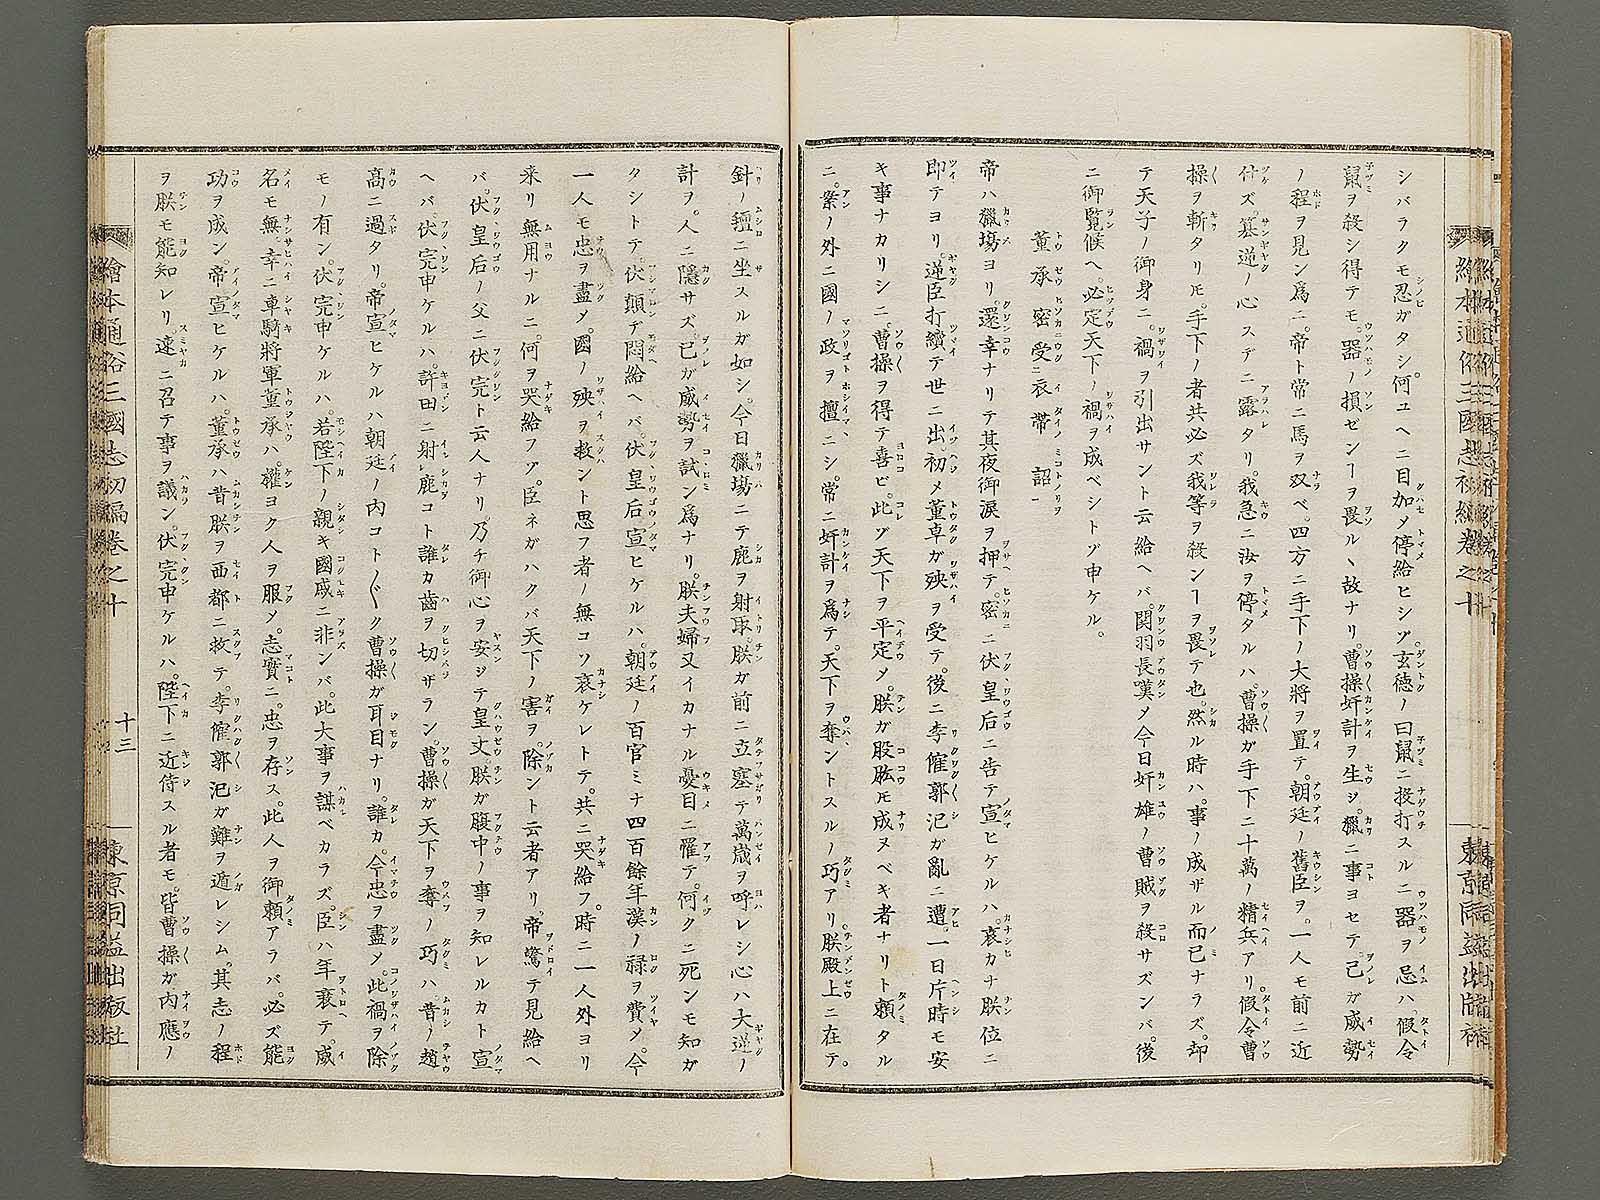 シバラクモ忍ガタシ。何ユヘニ目加メ停給ヒシゾ。玄徳ノ曰鼠ニ投打スルニ器ヲ忌ハ、假令
鼠ヲ殺シ得テモ、器ノ損ゼンヿヲ畏ルヽ故ナリ。曹操奸計ヲ生ジ。獵ニ事ヨセテ、己ガ威勢
ノ程ヲ見ン爲ニ。帝ト常ニ馬ヲ双べ。四方ニ手下ノ大將ヲ置テ。朝廷ノ舊臣ヲ。一人モ前ニ近
付ズ。簒逆ノ心スデニ露タリ。我急ニ汝ヲ停タルハ。曹操ガ手下ニ十萬ノ精兵アリ。假令曹
操ヲ斬タリモ。手下ノ者共必ズ我等ヲ殺ンヿヲ畏テ也。然ル時ハ。事ノ成ザル而已ナラズ。却
テ天子ノ御身ニ。禍ヲ引出サント云給ヘバ。関羽長嘆メ今日奸雄ノ曹賊ヲ殺サズンバ。後
ニ御覧候ヘ。必定天下ノ禍ヲ成ベシトゾ申ケル。
董承密受衣帶詔
帝ハ獵場ヨリ。還幸ナリテ其夜御涙ヲ押テ。密ニ伏皇后ニ告テ宣ヒケルハ。哀カナ朕位ニ
即テヨリ。逆臣打續テ世ニ出。初メ董卓ガ殃ヲ受テ。後ニ李傕郭汜ガ亂ニ遭。一日片時モ安
キ事ナカリシニ。曹操ヲ得テ喜ビ。此ゾ天下ヲ平定メ。朕ガ股肱モ成ヌベキ者ナリト頼タル
ニ。案ノ外ニ國ノ政ヲ擅ニシ。常ニ奸計ヲ爲テ。天下ヲ奪ントスルノ巧アリ。朕殿上ニ在テ。
針ノ氊ニ坐スルガ如シ。今日獵場ニテ鹿ヲ射取。朕ガ前ニ立塞テ萬歳ヲ呼レシ心ハ大逆ノ
計ヲ。人ニ隱サズ。已ガ威勢ヲ試ン爲ナリ。朕夫婦又イカナル憂目ニ罹テ。何クニ死ンモ知ガ
タシトテ。伏顛デ悶給ヘバ。伏皇后宣ヒケルハ。朝廷ノ百官ミナ四百餘年漢ノ禄ヲ費メ。今
一人モ忠ヲ盡メ。國ノ殃ヲ救ント思フ者ノ無コソ哀ケレトテ。共ニ哭給フ。時ニ一人外ヨリ
来リ無用ナルニ。何ヲ哭給フゾ。臣ネガハクバ天下ノ害ヲ。除ント云者アリ。帝驚テ見給ヘ
バ。伏皇后ノ父ニ伏完ト云人ナリ乃チ御心ヲ安ジテ皇丈。朕ガ腹中ノ事ヲ知レルカト宣
ヘバ。伏完申ケルハ。許田ニ射レ鹿コト誰カ齒ヲ切ザラン。曹操ガ天下ヲ奪ノ巧ハ昔ノ趙
高ニ過タリ。帝宣ヒケルハ朝廷ノ内コト〴〵ク曹操ガ耳目ナリ。誰カ。今忠ヲ盡メ。此禍ヲ除
モノ有ン。伏完申ケルハ。若陛下ノ親キ國戚ニ非ンバ。此大事ヲ謀ベカラズ臣ハ年衰テ。威
名モ無。幸ニ車騎將軍董承ハ。權ヨク人ヲ服メ。志實ニ。忠ヲ存ス。此人ヲ御頼アラバ。必ズ能
功ヲ成ン。帝宣ヒケルハ。董承ハ昔朕ヲ西都ニ救テ。李傕郭汜ガ難ヲ遁レシム。其志ノ程
ヲ朕モ能知レリ。速ニ召テ事ヲ議ン。伏完申ケルハ。陛下ニ近侍スル者モ。皆曹操ガ内應ノ
繪本通俗三國志初編卷之十
十三
東京同益出版社